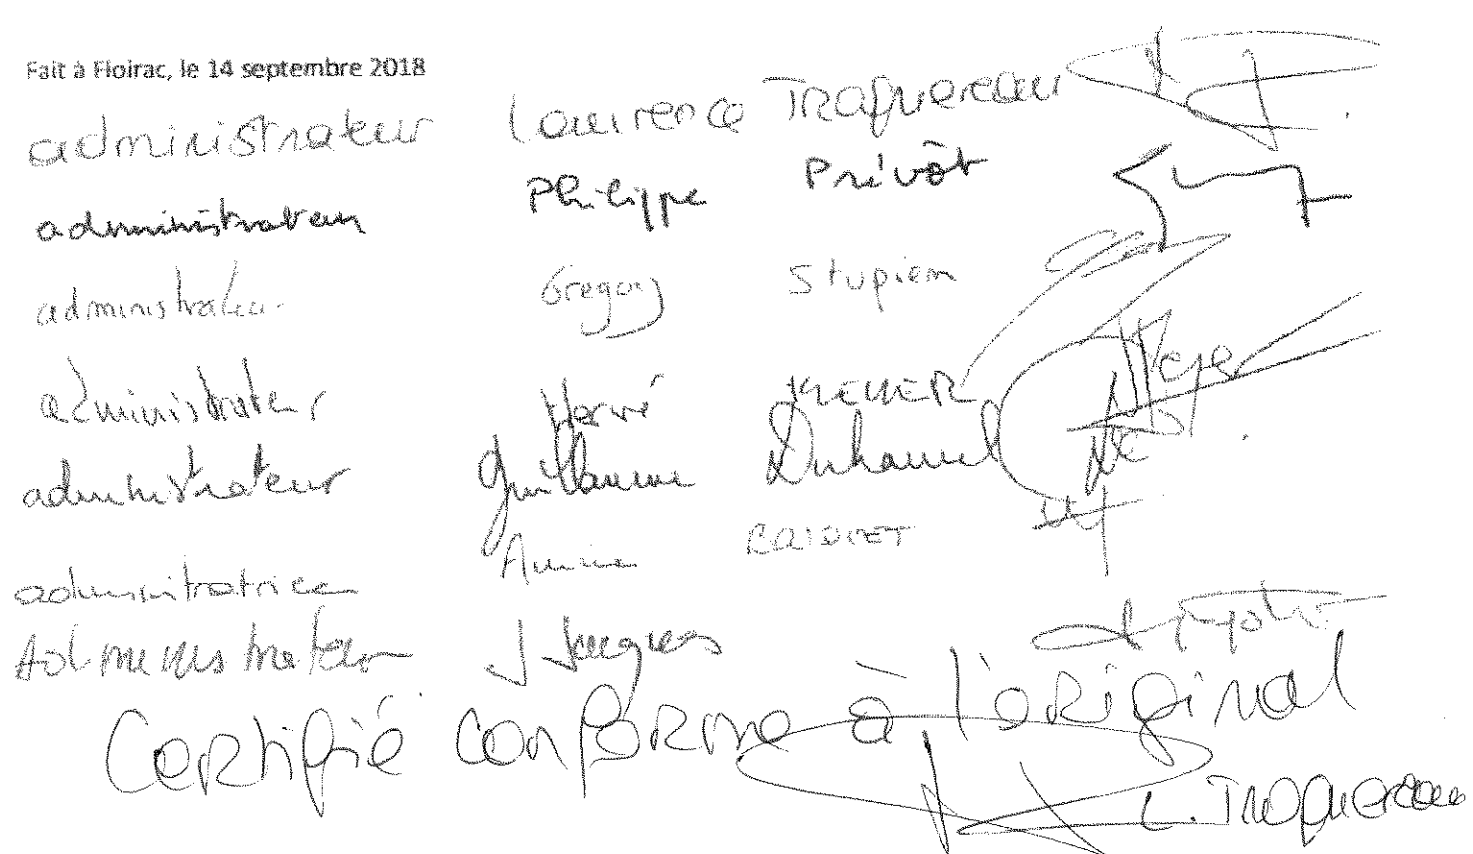 Fait à Floirac, le 14 septembre 2018
administrateur Laurence Traquereau
administrateur Philippe Prévôt
administrateur Gregory Stupien
administrateur Hervé
administrateur Guillaume Duhamel
administratrice
Administrateur J Jacques
Certifié conforme à l'original
L. Traquereau